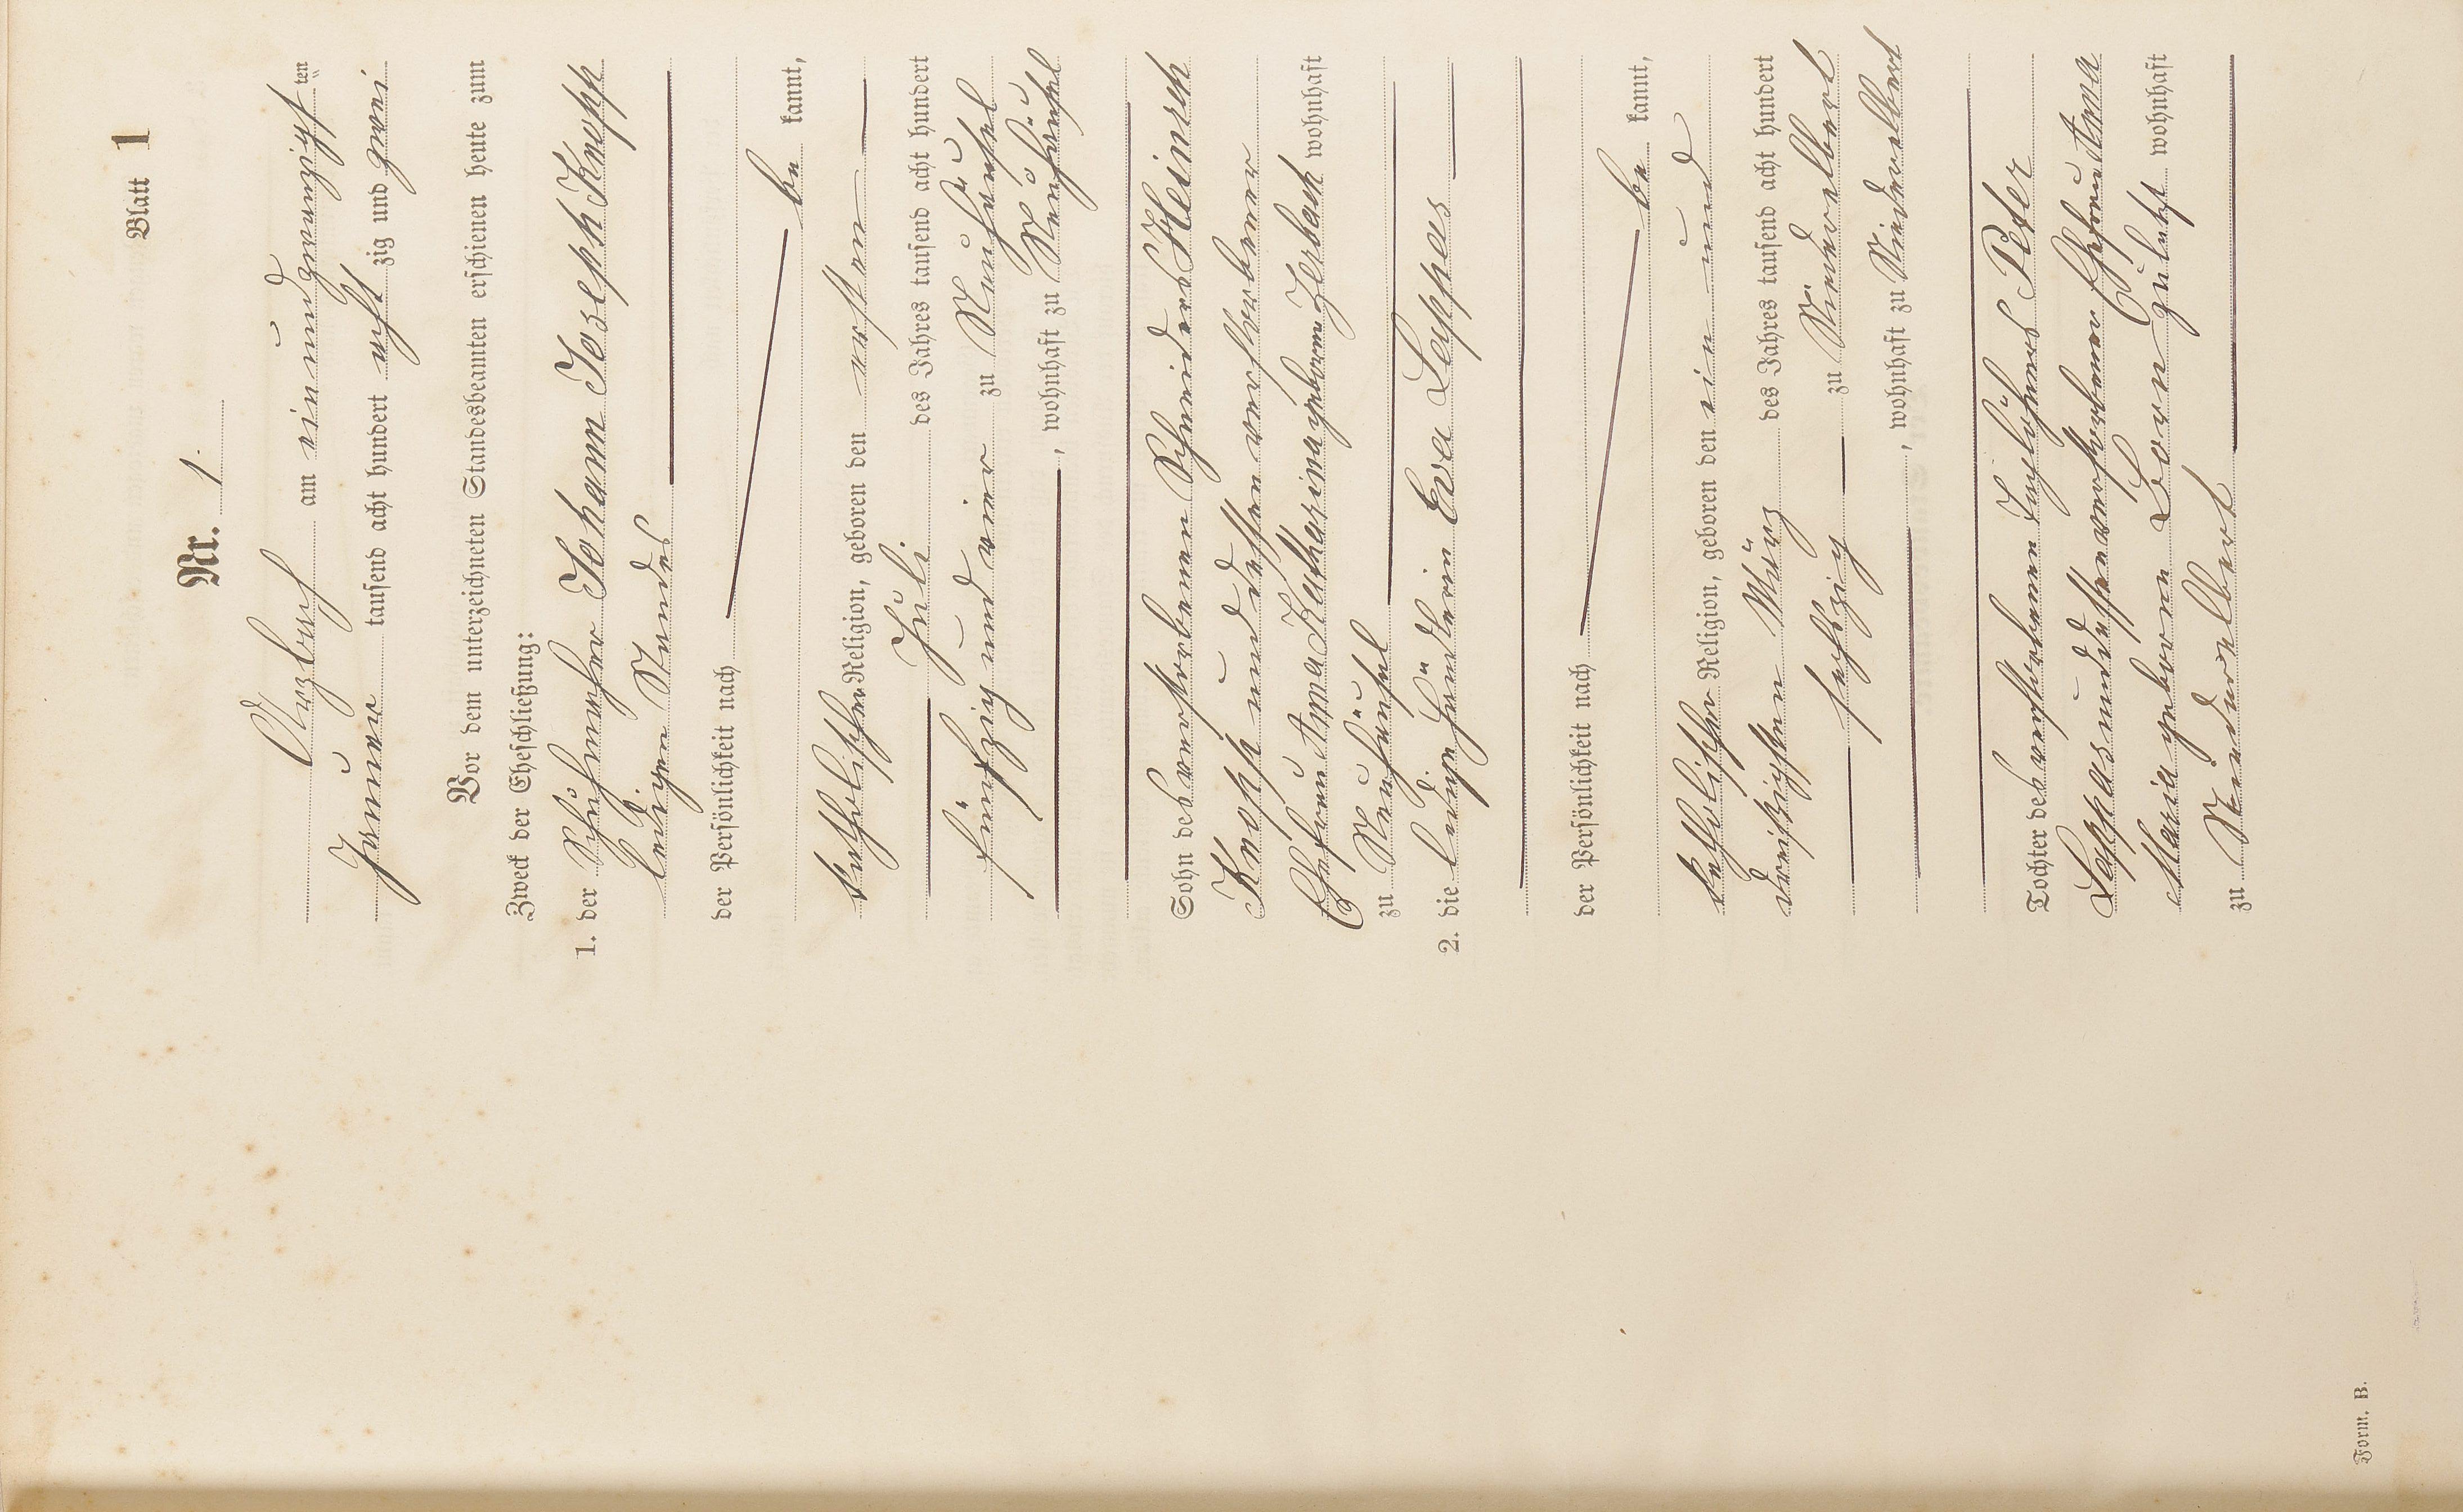 Blatt 1
Nr. 1.
Arzbach am einundzwanzigs ten
Januar tausend acht hundert acht zig und zwei
Vor dem unterzeichneten Standesbeamten erschienen heute zum
Zweck der Eheschließung:
1. der Schumacher Johann Joseph Knopp
ledigen Standes
der Persönlichkeit nach
be kannt,
katholischer Religion, geboren den ersten
Juli des Jahres tausend acht hundert
fünfzig und vier zu Neuhäusel
, wohnhaft zu Neuhäusel
Sohn des verstorbenen Schneiders Heinrich
Knopp und dessen verstorbener
Ehefrau Anna Katharina geborenen Zerbach wohnhaft
zu Neuhäusel
2. die ledige Händlerin Eva Leppas
der Persönlichkeit nach
be kannt,
katholischer Religion, geboren den ein und
dreißigsten März des Jahres tausend acht hundert
sechszig zu Niederelbert
, wohnhaft zu Niederelbert
Tochter des verstorbenen Taglöhners Peter
Leppas und dessen verstorbener Ehefrau Anna
Maria geborenen Born zuletzt wohnhaft
zu Niederelbert
Form. B.